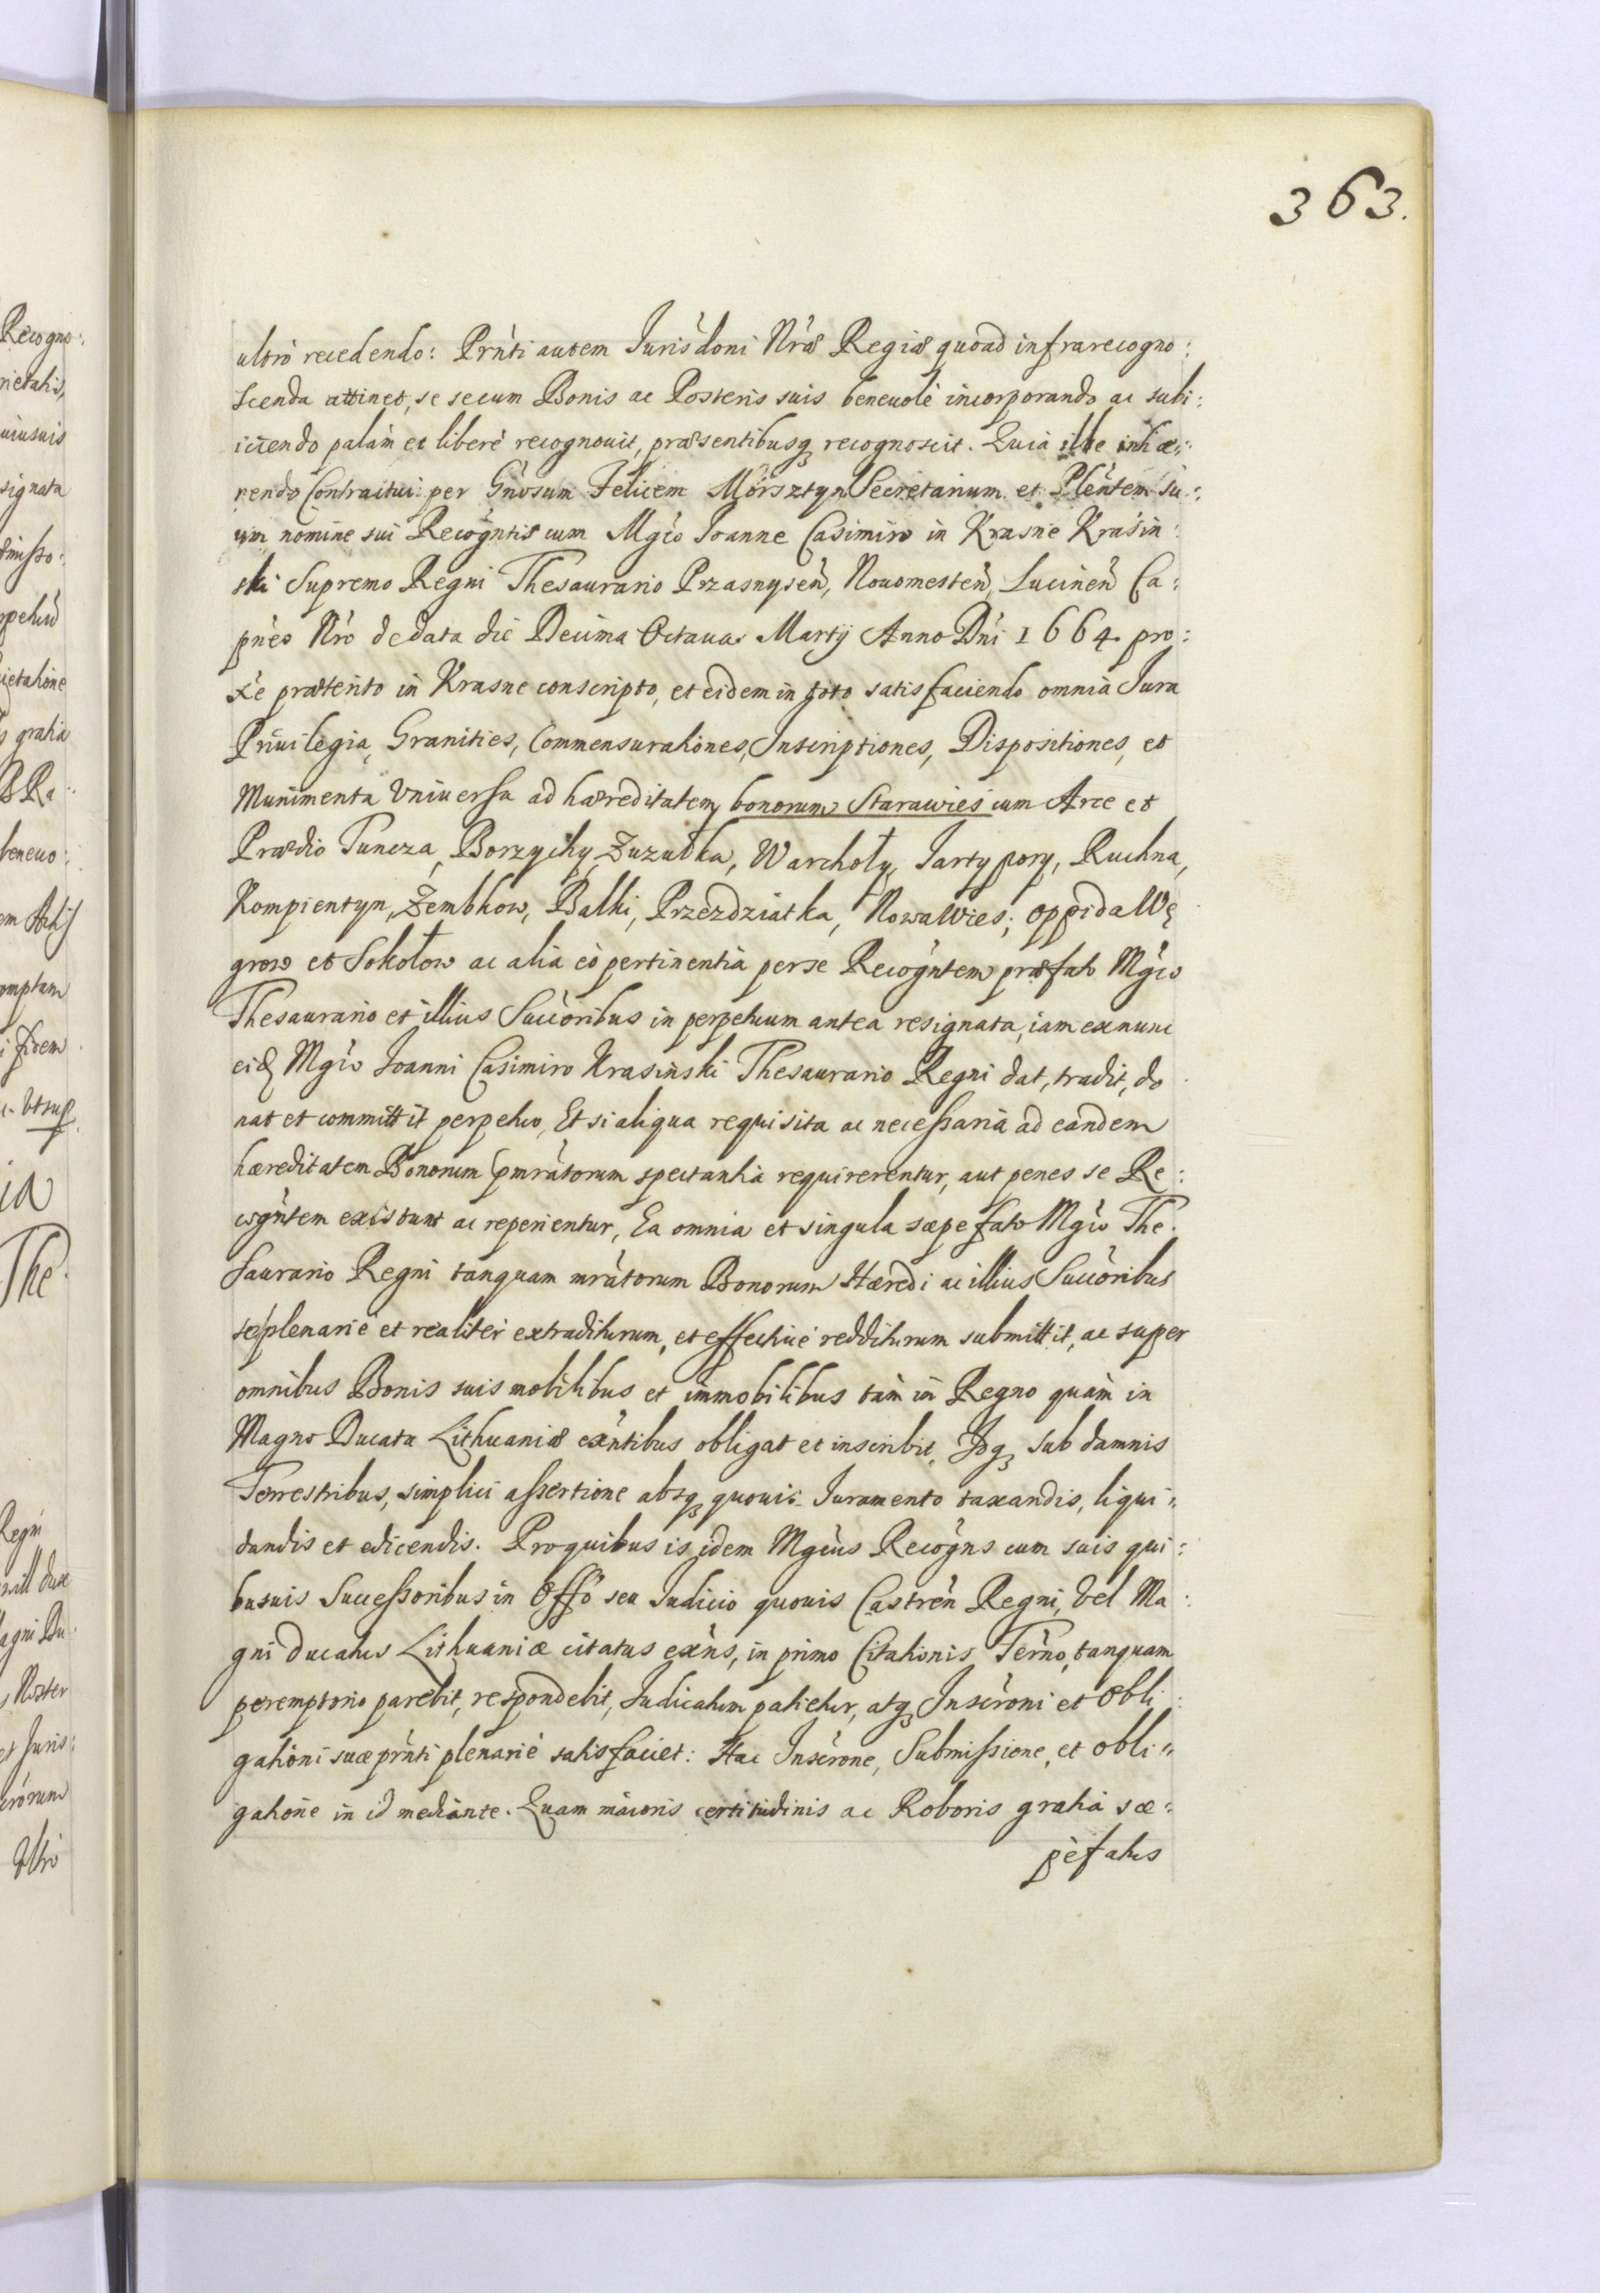 363.
ultrò recedendo: Prńti autem Jurisdoni Nræ Regiæ quoad infrarecogno:
scenda attinet, se secum Bonis ac Posteris suis beneuolè incorporando ac subi:
iciendo palàm et liberè recognouit, præsentibusq3 recognoscit. Quia ille inhæ:
rendo Contractui per Gńosum Felicem Morsztyn Secretarium et Pleńtem su:
um nomine sui Recogńtis cum Mgco Joanne Casimiro in Krasne Krasin:
ski Supremo Regni Thesaurario Przasnyseń, Nouomesteń, Lucineń Ca:
pneo Nro de data die Decima Octaua Martij Anno Dni 1664. pro:
xè præterito in Krasne conscripto, et eidem in toto satisfaciendo omnia Jura
Priuilegia, Granities, Commensurationes, Inscriptiones, Dispositiones, et
Munimenta Vniuersa ad hæreditatem bonorum Starawies cum Arce et
Prædio Tuncza, Borzychy, Zuzułka, Warchoły, Jartypory, Ruchna,
Kompientyn, Zembkow, Balki, Przezdziatka, Nowawies; oppida Wę
grow et Sokołow ac alia eò pertinentia per se Recogńtem præfato Mgco
Thesaurario et illius Succoribus in perpetuum antea resignata, iam exnunc
eid Mgco Joanni Casimiro Krasinski Thesaurario Regni dat, tradit, do
nat et committit perpetuo, Et si aliqua requisita ac necessaria ad eandem
hæreditatem Bonorum pmratorum spectantia requirerentur, aut penes se Re:
cogńtem existunt ac reperientur, Ea omnia et singula sæpefato Mgco The:
saurario Regni tanquam mratorum Bonorum Hæredi ac illius Succoribus
se plenariè et realiter extraditurum, et effectiuè redditurum submittit, ac super
omnibus Bonis suis mobilibus et immobilibus tàm in Regno quàm in
Magno Ducatu Lithuaniæ exńtibus obligat et inscribit, Idq3 sub damnis
Terrestribus, simplici assertione absq3 quouis Iuramento taxandis, liqui:
dandis et edicendis. Pro quibus is idem Mgcus Recogńs cum suis qui:
busuis Successoribus in Offo seu Iudicio quouis Castreń Regni, Vel Ma:
gni Ducatus Lithuaniæ citatus exńs, in primo Citationis Terno, tanquam
peremptorio parebit, respondebit, Iudicatum patietur, atq3 Inscroni et obli:
gationi suæ prńti plenariè satisfaciet: Hac Inscrone, Submissione, et obli:
gatione in id mediante. Quam maioris certitudinis ac Roboris gratia sæ:
pèfatus